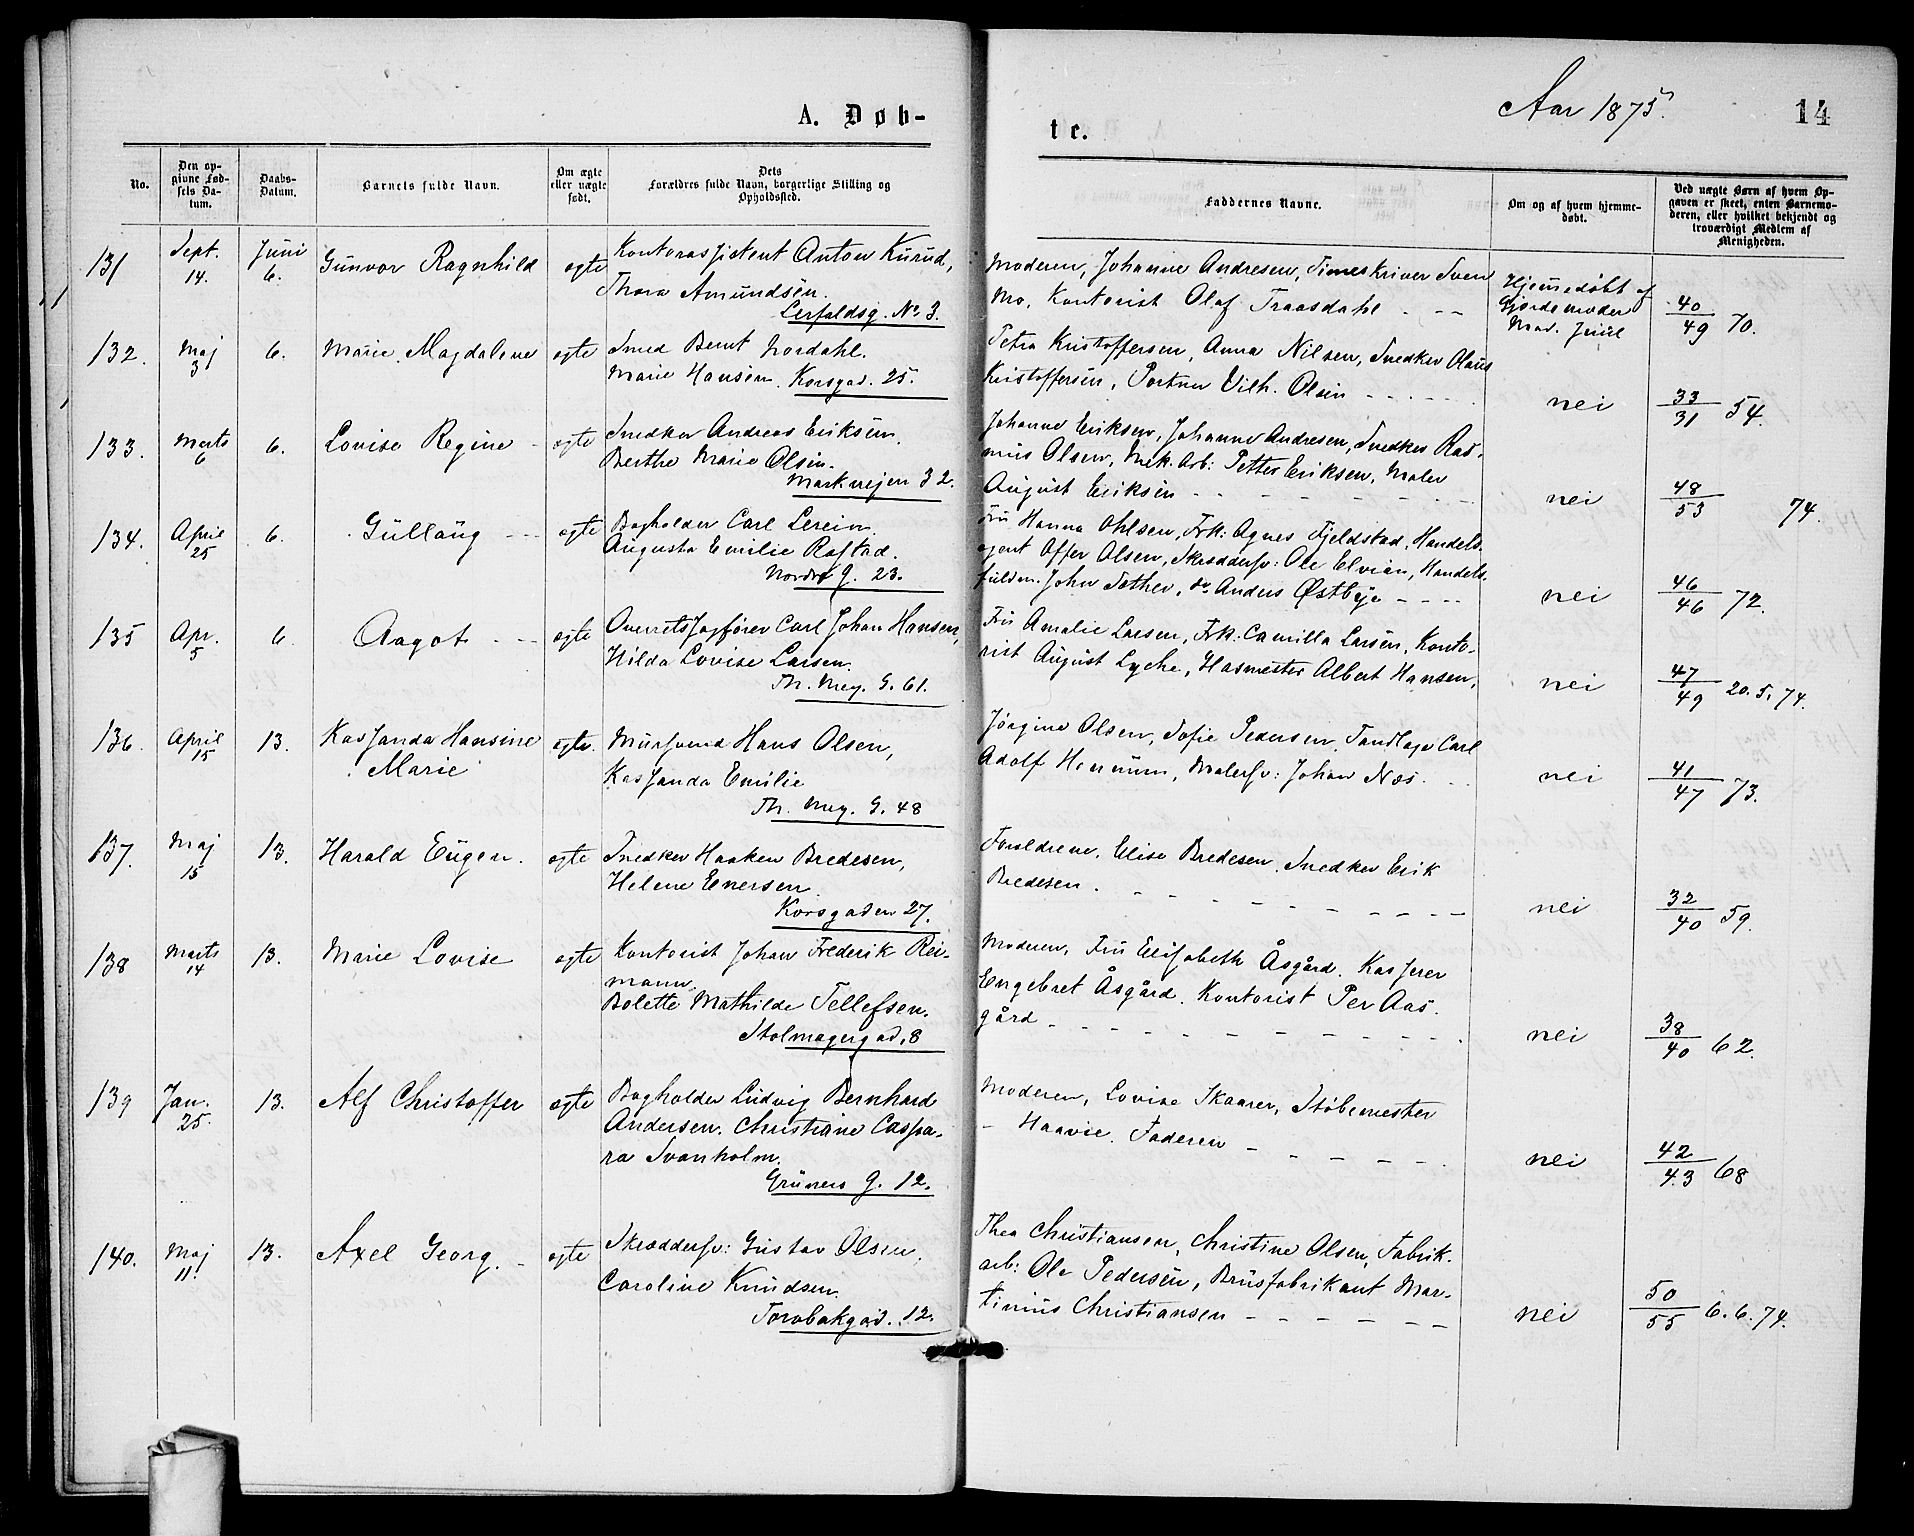 A. Døb-
te.
Aar 1875.
14
No.
Den op-
givne Fød-
sels Da-
tum.
Daabs-
Datum.
Barnets fulde Navn.
Om ægte
eller uægte
født.
Dets
Forældres fulde Navn, borgerlige Stilling og
Opholdssted.
Faddernes Navne.
Om og af hvem hjemme-
døbt.
Ved uægte Børn af hvem Op-
gaven er skeet, enten Barnemo-
deren, eller hvilket bekjendt og
troværdigt Medlem af
Menigheden.
131
Sept.
14.
Juni
6.
Gunvor Ragnhild
ægte
Kontorassistent Anton Kurud,
Thora Amundsen.
Lerfaldsg. No 3.
Moderen, Johanne Andresen, Timeskriver Sven
Mo, Kontorist Olaf Traasdahl
Hjemmedøbt af
Gjordemoder
Mad. Juul
40/49 70.
132.
Maj
3
6.
Marie Magdalene
ægte
Smed Bernt Nordahl.
Marie Hansen. Korsgad. 25.
Petra Kristoffersen, Anna Nilsen, Snedker Olaus
Kristoffersen, Portner Vilh. Olsen
nei
33/31 54.
133.
Marts
6
6.
Lovise Regine
ægte
Snedker Andreas Eriksen.
Berthe Marie Olsen.
Markvejen 32.
Johanne Eriksen, Johanne Andresen, Snedker Ras-
mus Olsen, Mek. Arb: Petter Eriksen, Maler
August Eriksen
nei
48/53 74.
134.
April
25
6.
Gullaug
ægte
Bogholder Carl Lerein
Augusta Emilie Rafstad.
Nordre G. 23.
Fru Hanna Ohlsen, Frk: Agnes Fjeldstad, Handels-
agent Offer Olsen, Skræddersv: Ole Elvian, Handels-
fuldm. John Sæther, do Anders Østbye
nei
46/46 72.
135
Apr.
5
6.
Aagot
ægte
Overretssagfører Carl Johan Hansen,
Hilda Lovise Larsen.
Th. Mey. G. 61.
Fru Amalie Larsen, Frk: Camilla Larsen, Konto-
rist August Lyche, Hasmester Albert Hansen,
nei
47/49 20.5.74.
136.
April
15
13.
Kassanda Hansine
Marie
ægte
Mursvend Hans Olsen,
Kassanda Emilie
Th. Mey. G. 48
Jørgine Olsen, Sofie Pedersen, Tandlæge Carl
Adolf Hennum, Malersv: Johan Næs.
nei
41/47 73.
137.
Maj
15
13.
Harald Eugen.
ægte
Snedker Haaken Bredesen,
Helene Enersen
Korsgaden 27.
Forældrene, Elise Bredesen, Snedker Erik
Bredesen.
nei
32/40 59.
138
Marts
14
13.
Marie Lovise
ægte
Kontorist Johan Frederik Rei-
mann
Bolette Mathilde Tellefsen.
Stolmagergad. 8
Moderen, Fru Elisabeth Åsgård, Kasserer
Engebret Åsgård, Kontorist Per Aas-
gård
nei
38/40 62.
139
Jan.
25.
13.
Alf Christoffer
ægte
Bogholder Ludvig Bernhard
Andersen. Christiane Caspa-
ra Svanholm.
Grüners G. 12.
Moderen, Lovise Skaarer, Støbemester
Haavie. Faderen
nei
42/43 68
140.
Maj
11.
13.
Axel Georg.
ægte
Skræddersv: Gustav Olsen.
Caroline Knudsen.
Torvbakgad. 12.
Thea Christiansen, Christine Olsen, Fabrik-
arb: Ole Pedersen, Brusfabrikant Mar-
tinius Christiansen
nei
50/55 6.6.74.